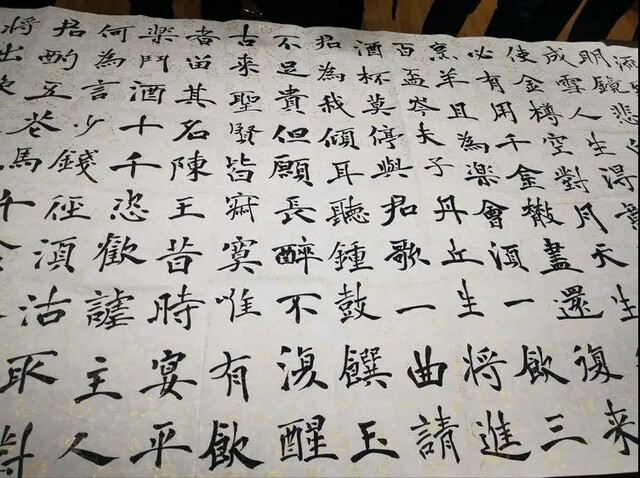 明鏡悲
成雪人生得
使金樽空對月天生
必有用千金散盡還復来
烹羊且為樂會須一飲三
百盃岑夫子丹丘生將進
酒杯莫停與君歌一曲請
君為我傾耳聽鍾鼓饌玉
不足貴但願長醉不復醒
古來聖賢皆寂寞唯有飲
者留其名陳王昔時宴平
樂鬥酒十千恣歡謔主人
何為言少錢徑須沽取對
君酌五花馬千
將出